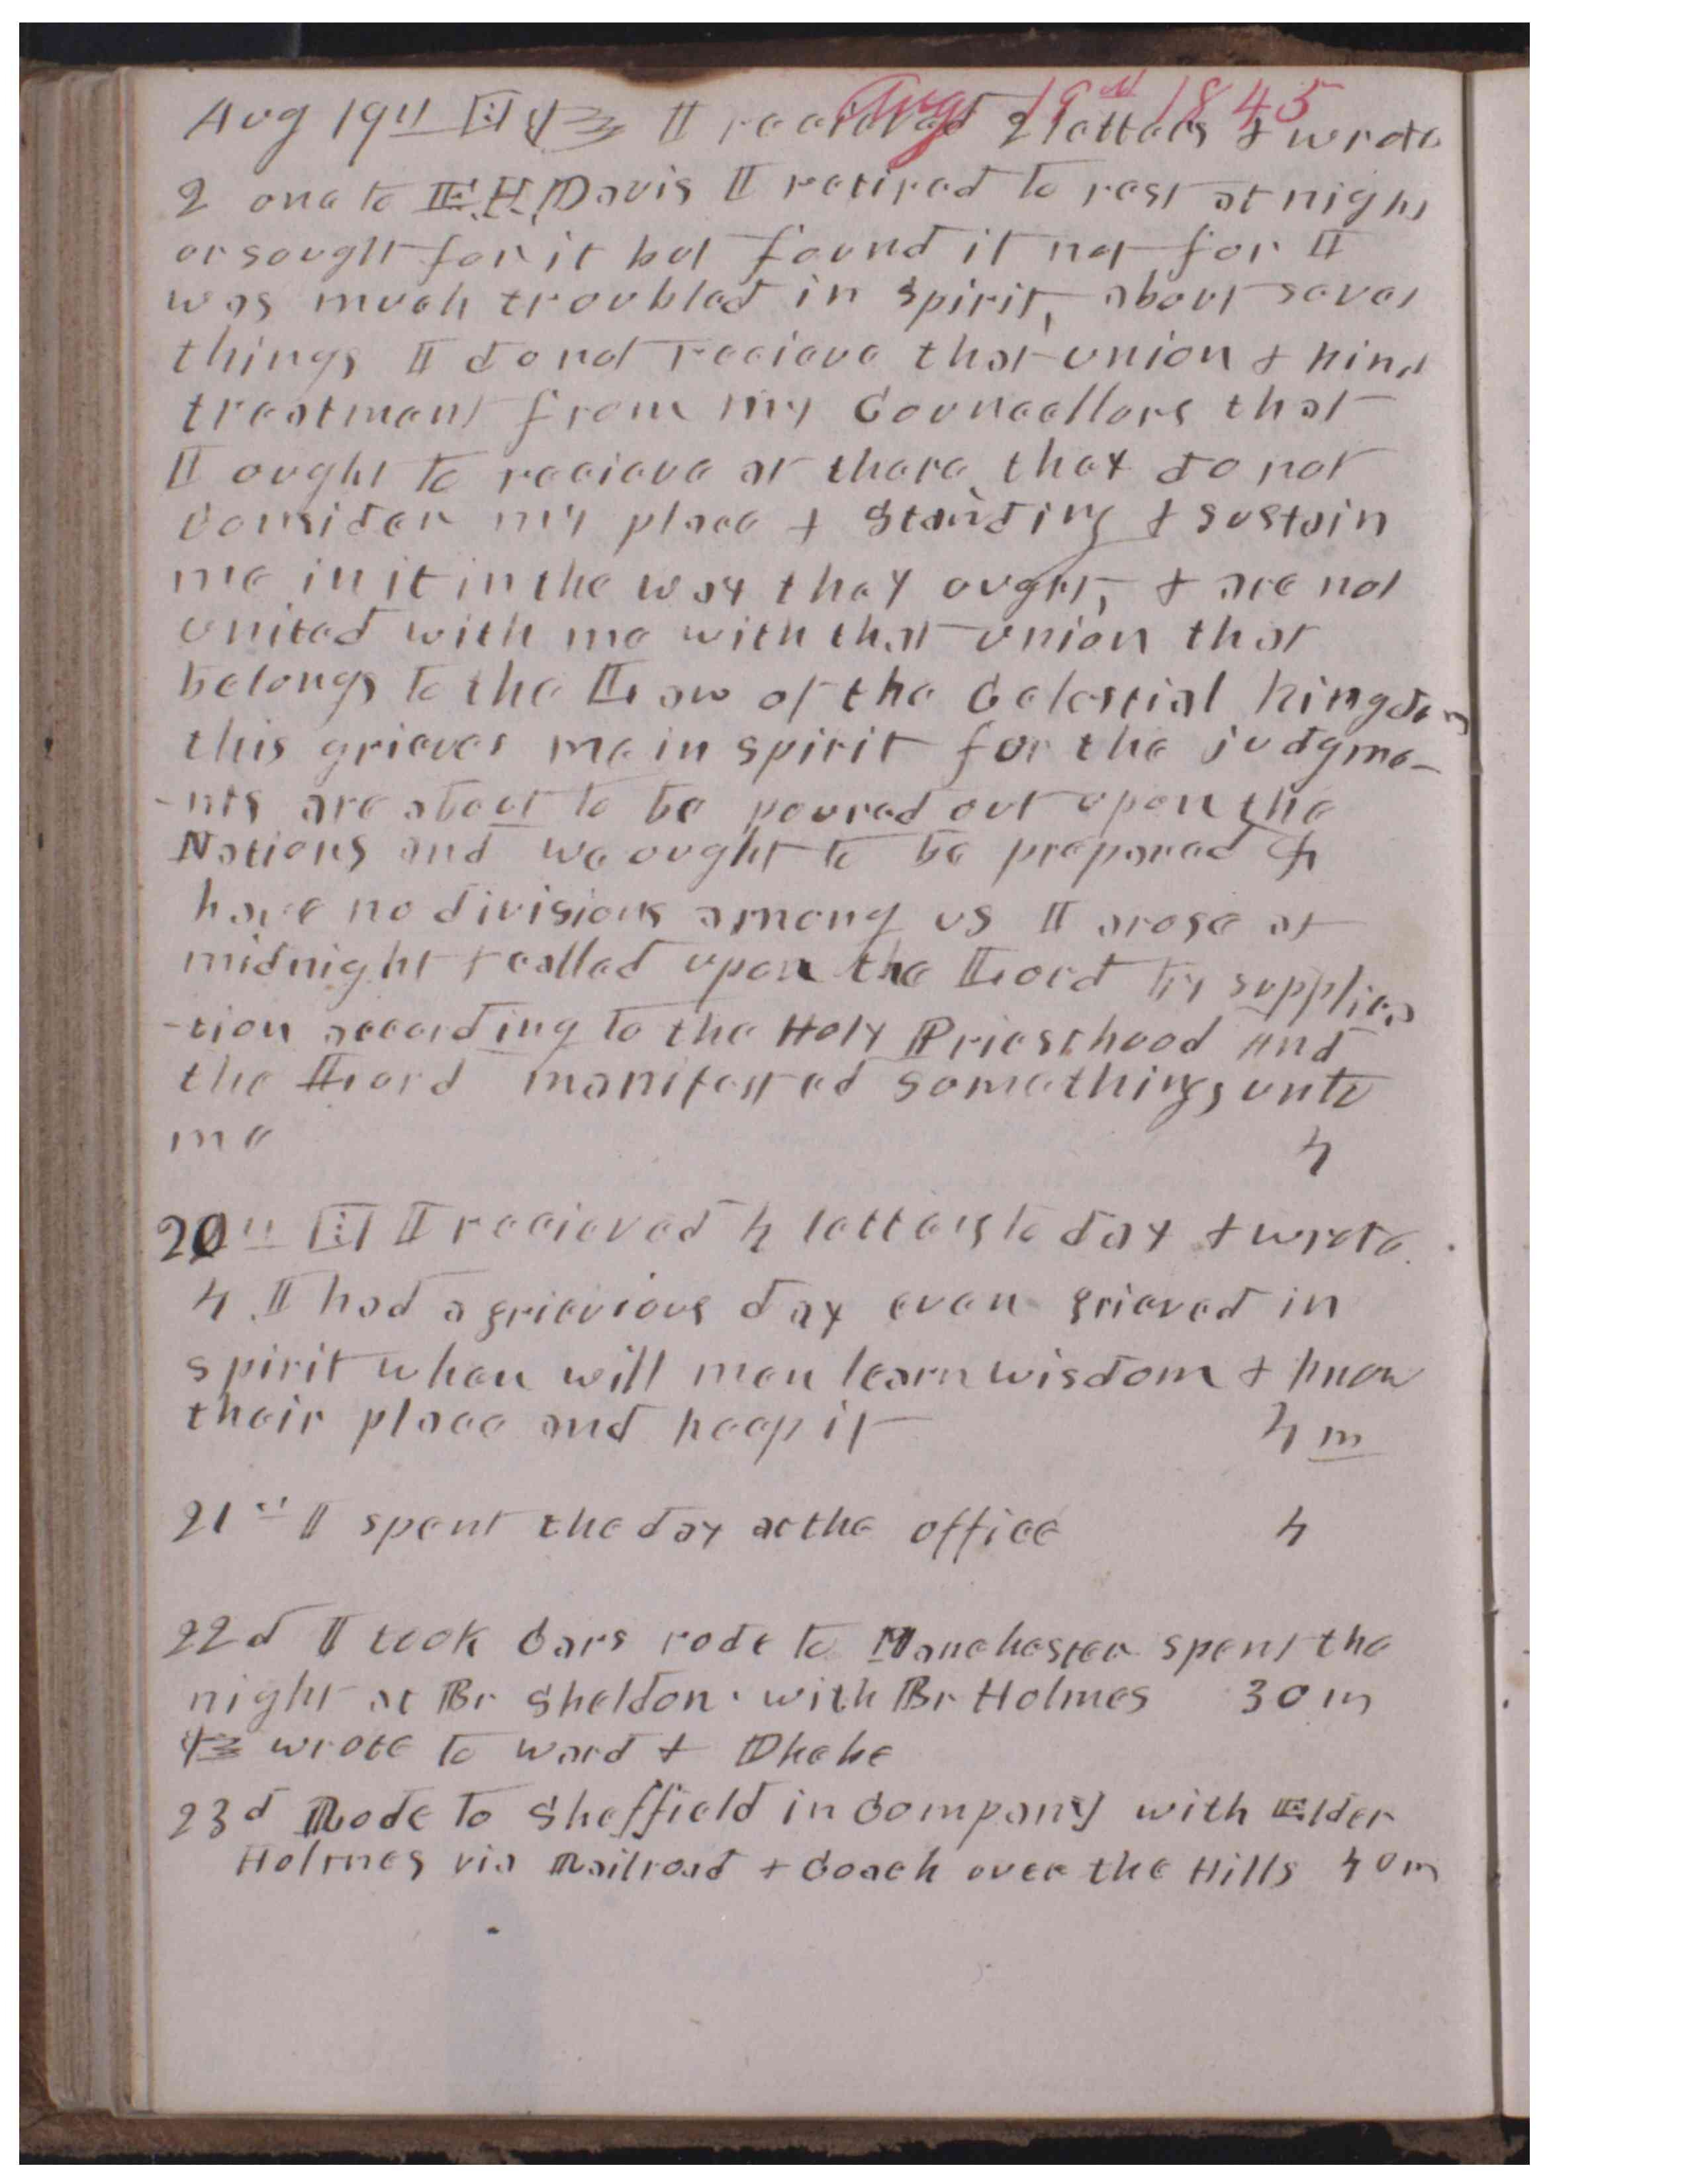 Aug 19th 1845
Aug 19th I recieved 2 letters & wrote
2 one to E.H. Davis I retired to rest at night
or sought for it but found it not for I
was much troubled in spirit, about sever
things I do not recieve that union & kind
treatment from my Councellors that
I ought to recieve or there they do not
Consider my place & standing & sustain
me in it in the way they ought, & are not
united with me with that union that
belongs to the Law of the Celestial kingdom
this grieves me in spirit for the judgme-
-nts are about to be poured out upon the
Nations and we ought to be prepared &
have no divisions among us I arose at
midnight & called upon the Lord by supplica
-tion according to the Holy Priesthood And
the Lord manifested somethings unto
me 4
20th I recieved 4 letters to day & wrote
4 I had a grievious day even grieved in
spirit when will men learn wisdom & know
their place and keep it 4 m
21st I spent the day at the office 4
22d I took Cars rode to Manchester spent the
night at Br Sheldon with Br Holmes 30 m
wrote to Ward & Phebe
23d Rode to Sheffield in Company with Elder
Holmes via Railroad & Coach over the Hills 40 m